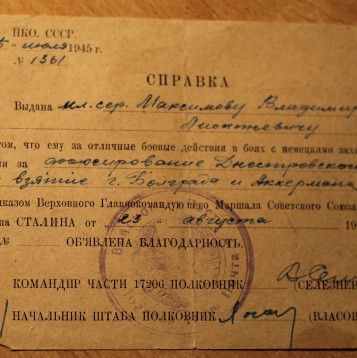 НКО. СССР.
5 " июля 1945 г.
№ 1361
СПРАВКА
Выдана мл. сер. Максимову Владимир
Леонтьевичу
том, что ему за отличные боевые действия в боях с немецкими захв
ми за форсирование Днестровског
взятие г. Болграда и Аккермана
иказом Верховного Главнокомандующего Маршала Советского Союза
на СТАЛИНА от " 23 " августа 19
№ ОБ'ЯВЛЕНА БЛАГОДАРНОСТЬ.
КОМАНДИР ЧАСТИ 17206 ПОЛКОВНИК (СЕЛЕЗНЕ
НАЧАЛЬНИК ШТАБА ПОЛКОВНИК (ВЛАСОВ